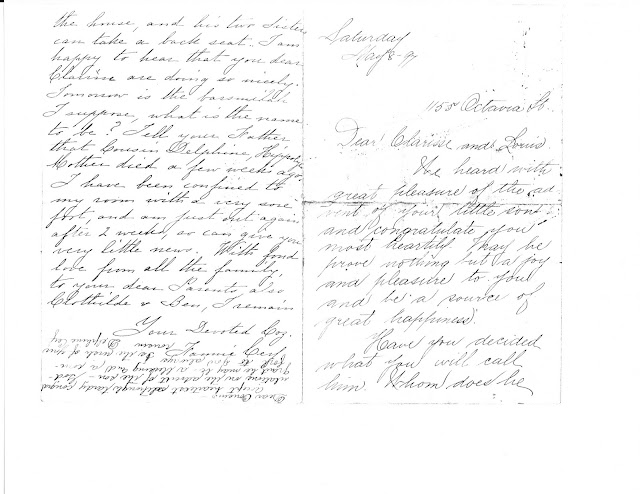 Saturday
May 8-97
Octavia St.
Dear Clarisse and Louis
We heard with
great pleasure of the ad
vent of your little son
and congratulate you
most heartily. May he
prove nothing but a joy
and pleasure to you
and be a source of
great happiness.
Have you decided
what you will call
him. Whom does he
the house, and his two Sisters
can take a back seat. I am
happy to hear that you dear
Clarisse are doing so nicely.
Tomorrow is the
I suppose, what is the name
to be? Tell your Father
that Cousin Delphine,
Mother died a few weeks ago.
I have been confined to
my room with a very sore
foot, and am just out again
after 2 weeks, so can give you
very little news. With fond
love from all the family,
to your dear Parents, also
Clothilde & Ben, I remain
Your Devoted Coz.
Fannie Cerf
Dear Cousins -
Accept heartiest although tardy
on the advent of the son - God
grant he may be a blessing and a
to you
the wish of your
Cousin
Delphine Cerf